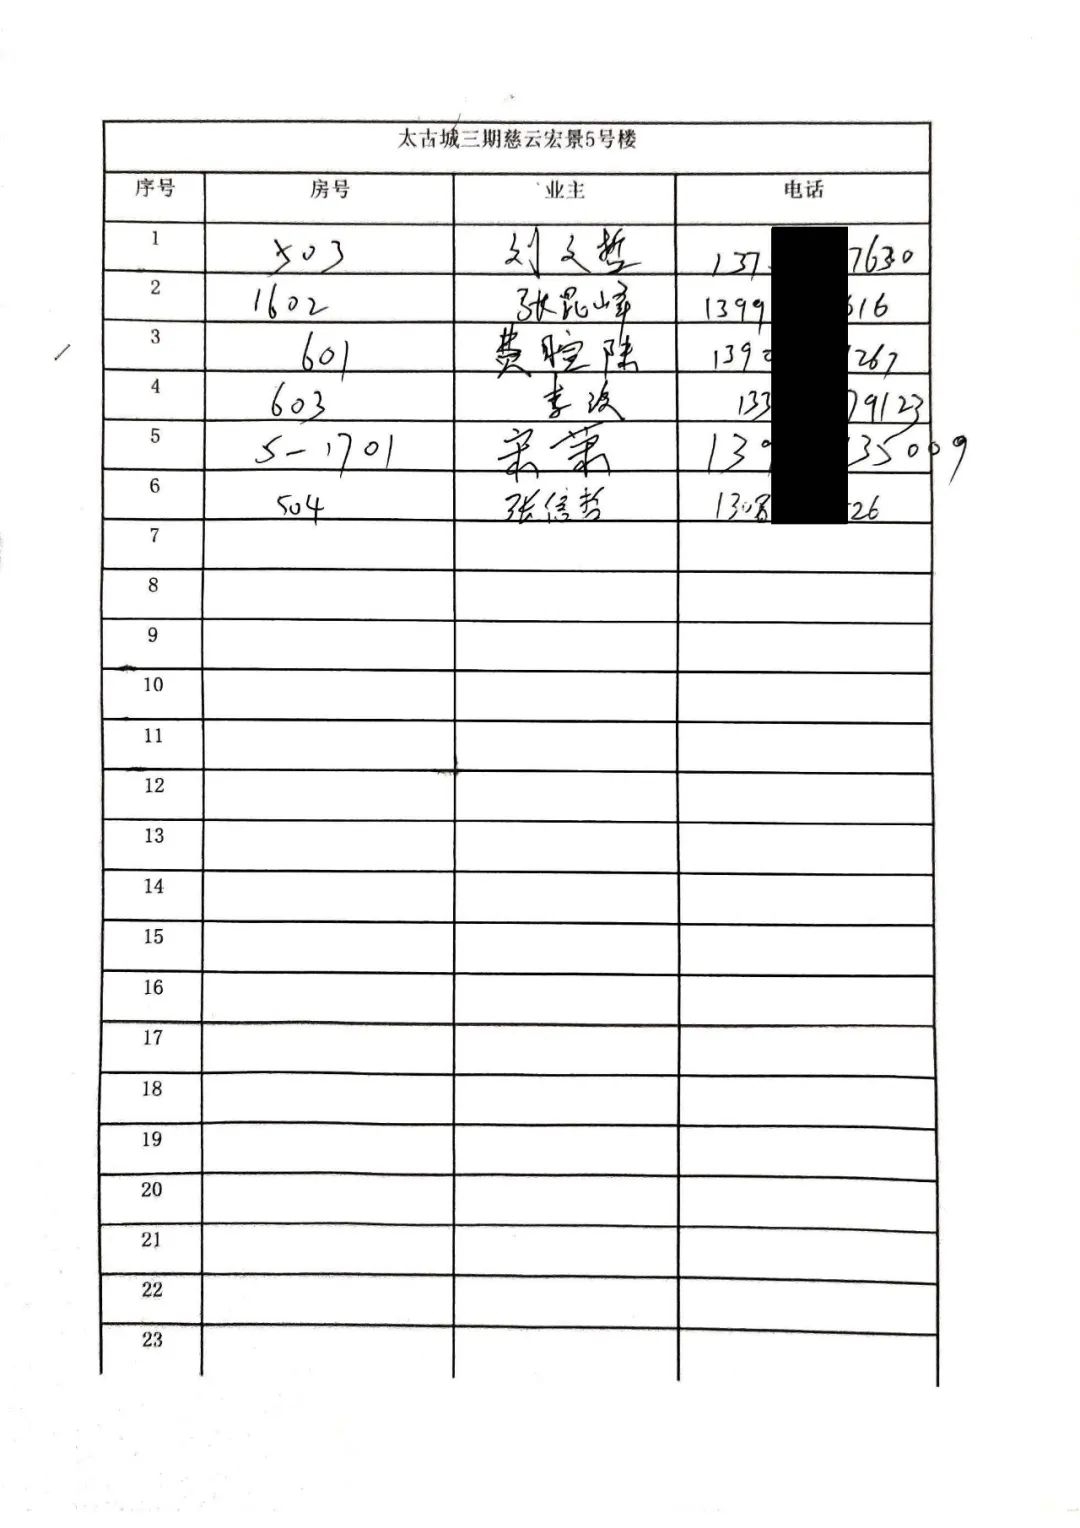 太古城三期慈云宏景5号楼
序号 房号 业主 电话
1 503 刘文哲 137 7630
2 1602 张昆峰 1399 616
3 601 费 陆 139 267
4 603 李 133 79123
5 5-1701 宋萧 139 35009
6 504 张信哲 130 26
7
8
9
10
11
12
13
14
15
16
17
18
19
20
21
22
23